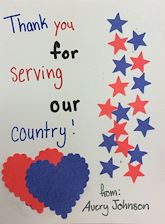 Thank you
for
serving
our
Country!
from:
Avery Johnson